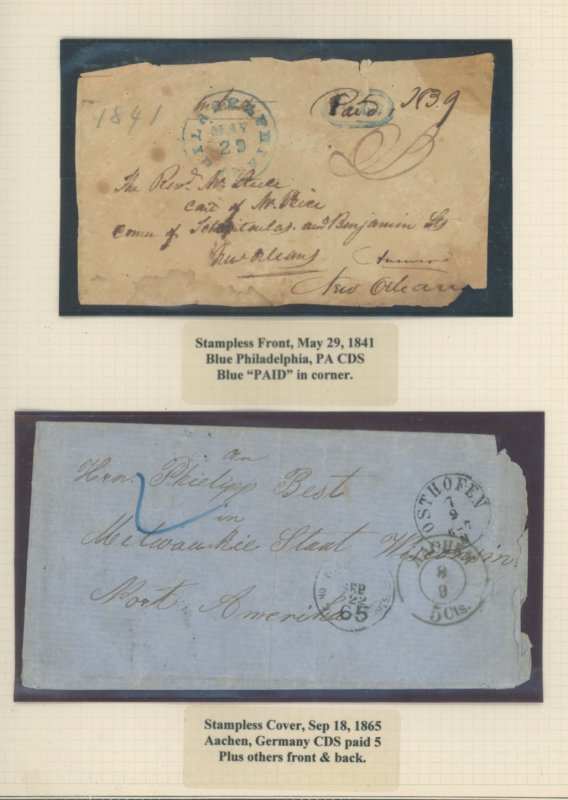 1841
PHILADELPHIA
MAY
29
Paid
The Revd. Mr.
care of Mr. Price
Corner of and Benjamin Sts
New Orleans
New Orleans
Stampless Front, May 29, 1841
Blue Philadelphia, PA CDS
Blue “PAID” in corner.
An
Hrn. Philipp Best
in
Milwaukie Staat Wisconsin
Nort Amerika
OSTHOFEN
7
9
AACHEN
8
9
5 Cts.
SEP
22
65
Stampless Cover, Sep 18, 1865
Aachen, Germany CDS paid 5
Plus others front & back.